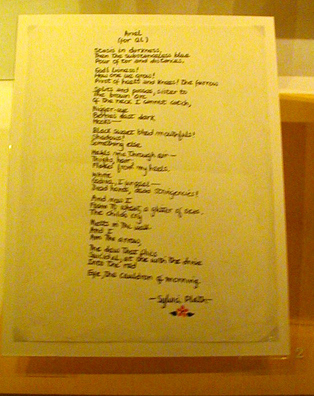 Ariel
(for Q2)
Stasis in darkness,
Then the substanceless blue
Pour of tor and distances.
God's lioness!
How one we grow!
Pivot of heels and knees! The furrow
Splits and passes, sister to
The brown arc
Of the neck I cannot catch,
Nigger-eye
Berries cast dark
Hooks—
Black sweet blood mouthfuls!
Shadows!
Something else
Hauls me through air—
Thighs, hair
Flakes from my heels.
White
Godiva, I unpeel—
Dead hands, dead stringencies!
And now I
Foam to wheat, a glitter of seas.
The child's cry
Melts in the wall
And I
Am the arrow,
The dew that flies
Suicidal, at one with the drive
Into the red
Eye, the cauldron of morning.
—Sylvia Plath—
2